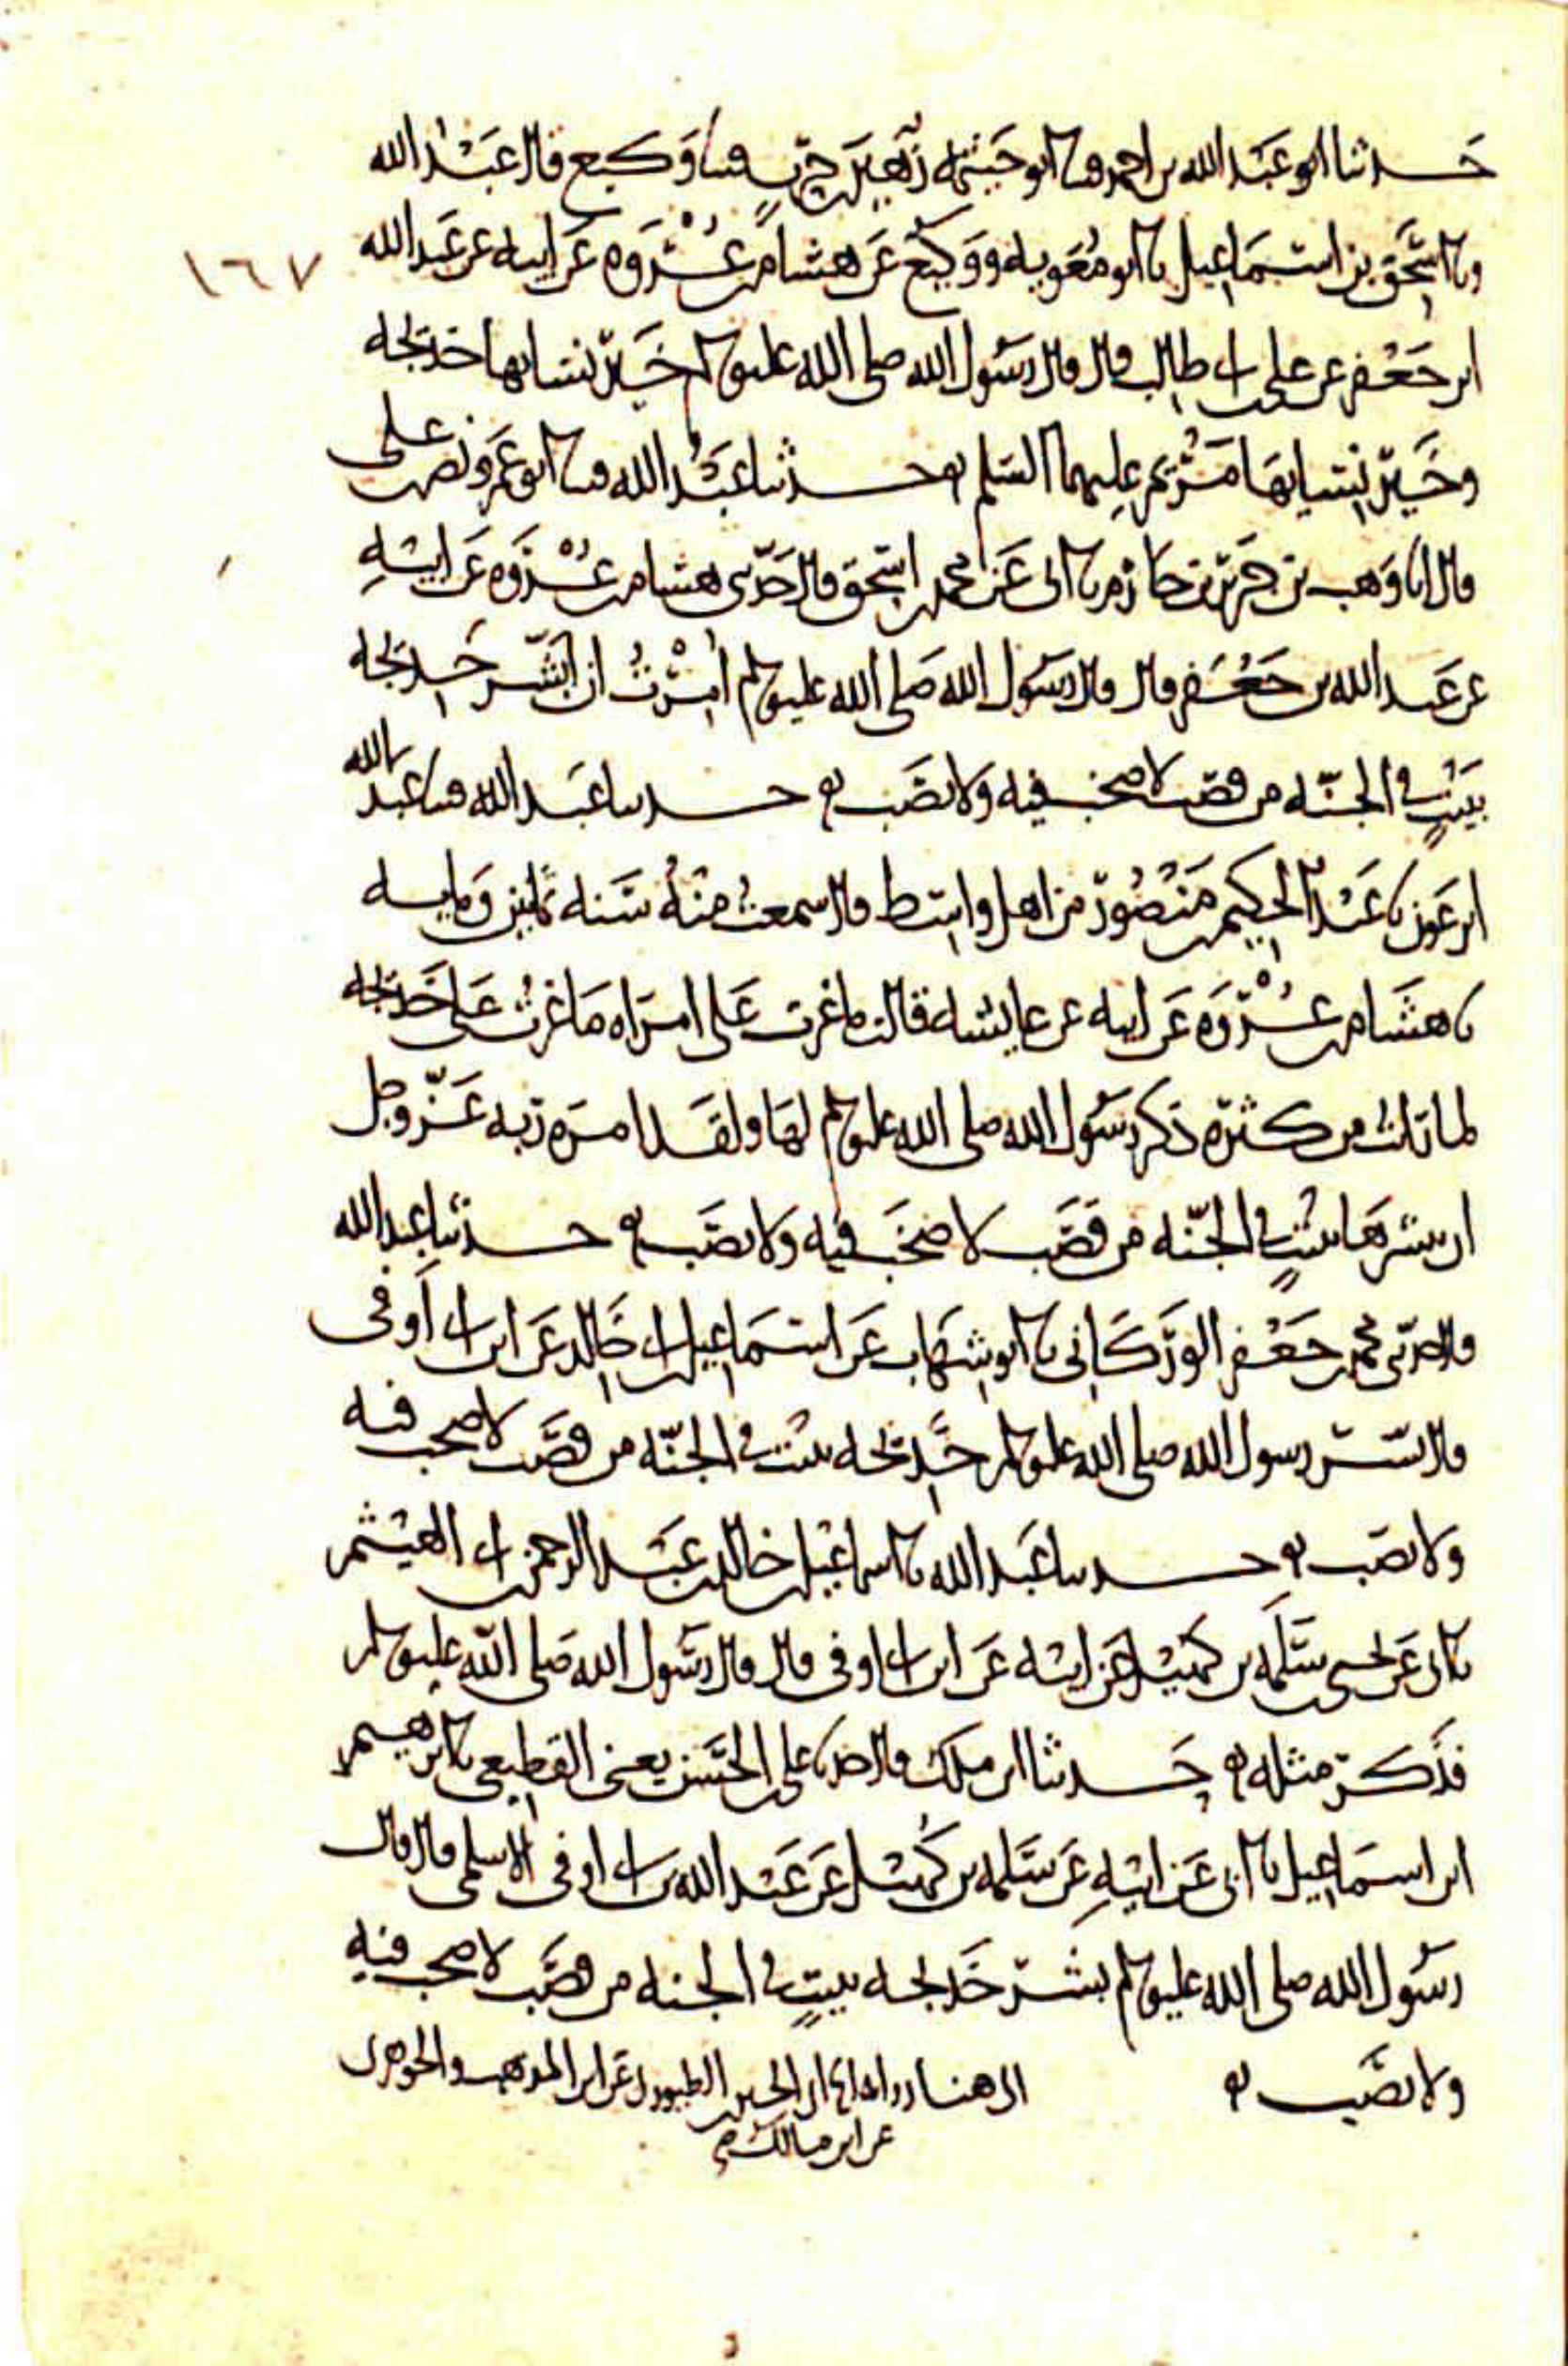 حدثنا ابو عبد الله بن احمد قثنا ابو خيثمه زهير بن حرب قثنا وكيع قال عبد الله
ونا اسحق بن اسمعيل نا ابو معويه ووكيع عن هشام بن عروه عن ابيه عن عبد الله
١٦٧
ابن جعفر عن علي بن ابي طالب قال قال رسول الله صلى الله عليه وسلم خير نسايها خديجه
وخير نسايها مريم عليهما السلم حدثنا عبد الله قثنا ابو عمرو نصر بن علي
قال انا وهب بن جرير بن حازم نا ابي عن محمد بن اسحق قال حدثني هشام بن عروه عن ابيه
عن عبد الله بن جعفر قال قال رسول الله صلى الله عليه وسلم امرت ان ابشر خديجه
ببيت في الجنه من قصب لا صخب فيه ولا نصب حدثنا عبد الله قثنا عبد الله
ابن عون نا عبد الحكيم بن منصور من اهل واسط قال سمعت منه سنه ثمنين ومايه
نا هشام بن عروه عن ابيه عن عايشه قالت ما غرت على امراه ما غرت على خديجه
لما نلت من كثره ذكر رسول الله صلى الله عليه وسلم لها ولقد امره ربه عز وجل
ان يبشرها ببيت في الجنه من قصب لا صخب فيه ولا نصب حدثنا عبد الله
قال حدثني محمد بن جعفر الوركاني نا ابو شهاب عن اسماعيل بن ابي خالد عن ابن ابي اوفى
قال بشر رسول الله صلى الله عليه وسلم خديجه ببيت في الجنه من قصب لا صخب فيه
ولا نصب حدثنا عبد الله نا اسماعيل بن خالد بن عبد الرحمن بن ابي الهيثم
عن يحيى بن سلمه بن كهيل عن ابيه عن ابن ابي اوفى قال قال رسول الله صلى الله عليه وسلم
فذكر مثله حدثنا ابن ملك قال علي بن الحسن يعني القطيعي نا ابرهيم
ابن اسماعيل نا ابي عن ابيه عن سلمه بن كهيل عن عبد الله بن ابي اوفى الاسلمي قال قال
رسول الله صلى الله عليه وسلم بشر خديجه ببيت في الجنه من قصب لا صخب فيه
ولا نصب الى هنا ابن الطيوري عن ابن المذهب والجوهري
عن ابن مالك